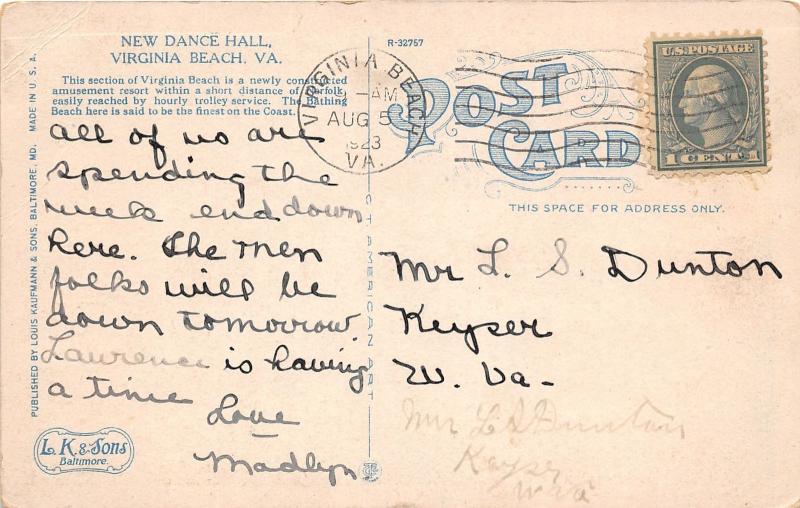 NEW DANCE HALL,
VIRGINIA BEACH, VA.
This section of Virginia Beach is a newly constructed
amusement resort within a short distance of Norfolk,
easily reached by hourly trolley service. The Bathing
Beach here is said to be the finest on the Coast.
all of us are
spending the
week end down
here. The men
folks will be
down tomorrow
Laurence is having
a time
Love
Madlyn
PUBLISHED BY LOUIS KAUFMANN & SONS, BALTIMORE, MD. MADE IN U.S.A.
L. K. & Sons
Baltimore.
CT AMERICAN ART
R-32757
POST
CARD
VIRGINIA BEACH
AM
AUG 5
1923
VA.
U.S. POSTAGE
1 CENT 1
THIS SPACE FOR ADDRESS ONLY.
Mr L. S. Dunton
Keyser
W. Va-
Mr L S Dunton
Keyser
W Va